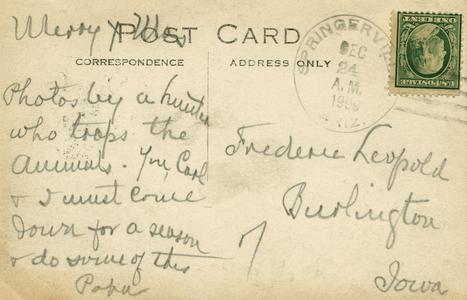 Merry Xmas
POST CARD
CORRESPONDENCE
ADDRESS ONLY
SPRINGERVIL
DEC
24
A.M.
1909
ARIZ.
ONE CENT
Photos by a hunter
who traps the
Animals. You, Carl
& I must come
down for a season
& do some of this
Papa
Frederic Leopold
Burlington
Iowa